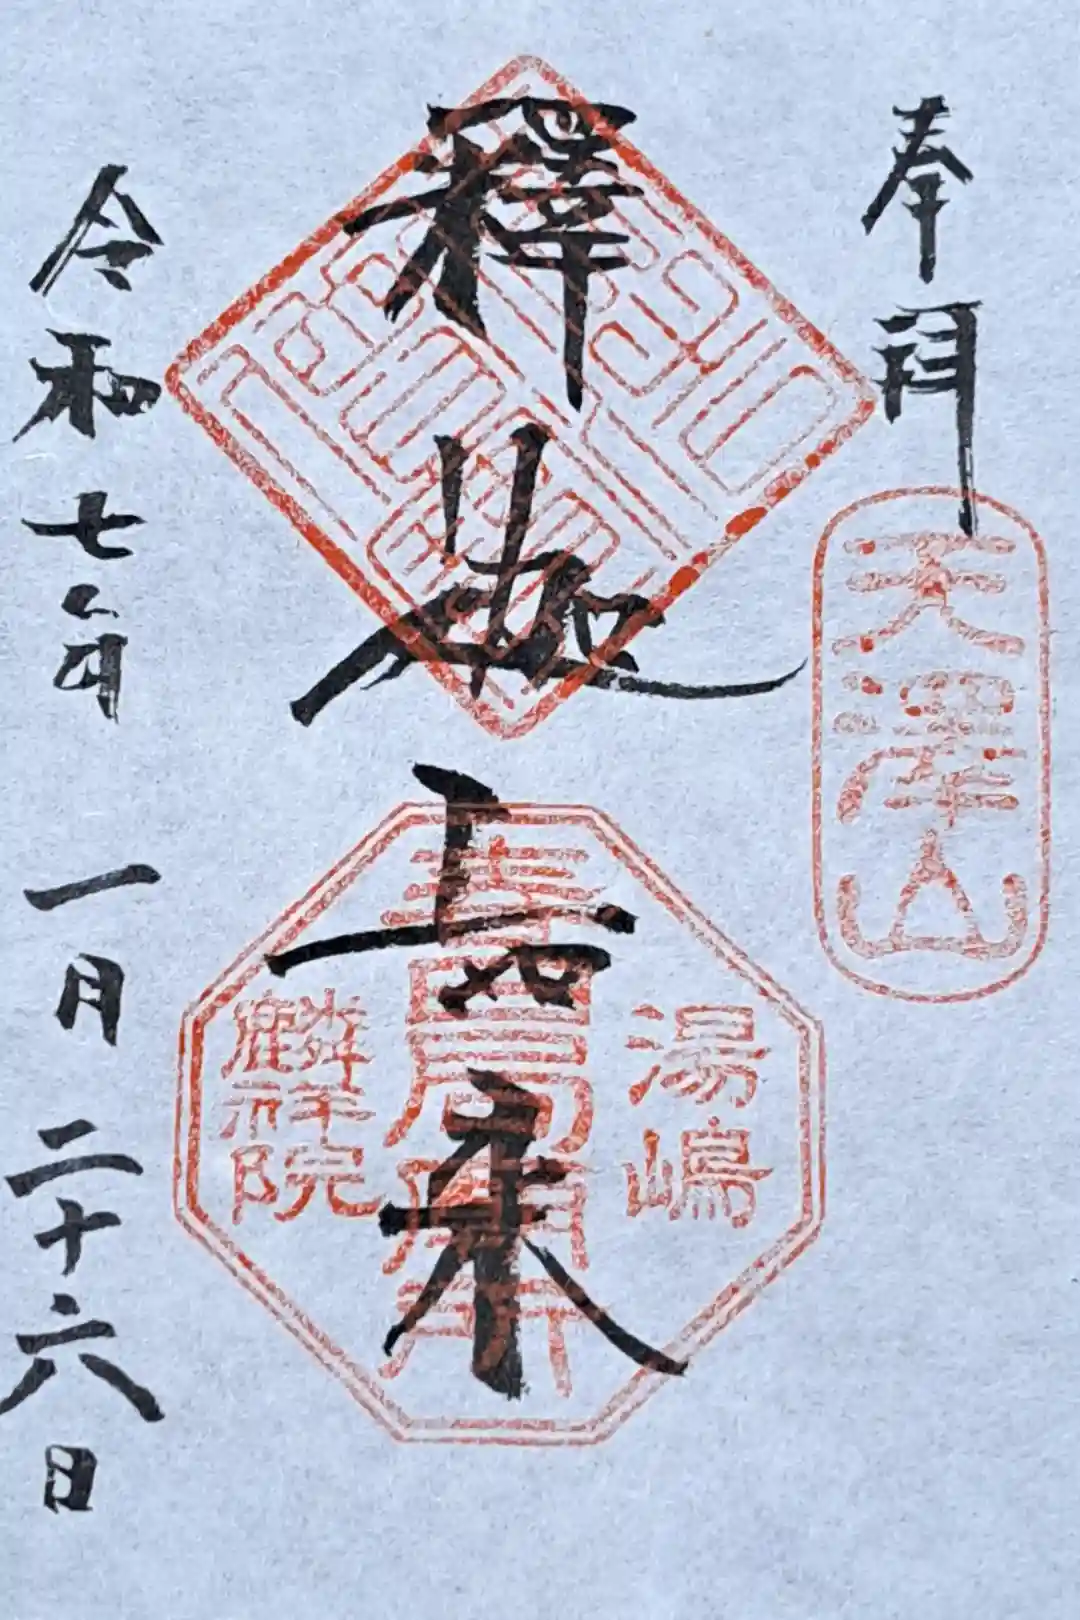 奉拝
天澤山
釋迦如来
湯嶋
春日局
麟祥院
令和七年一月二十六日